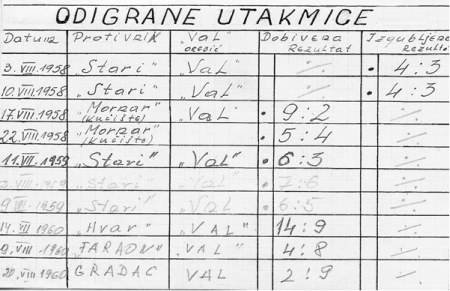 ODIGRANE UTAKMICE
Datum Protivnik "VaL" Dobivena Izgubljena
Rezultat
3. VIII. 1958 "Stari" "VaL" ·/· • 4:3
10. VIII. 1958 "Stari" "VaL" ·/· • 4:3
17. VIII. 1958 "Morzar" "VaL" • 9:2 ·/·
(Kućište)
22. VIII. 1958 "Morzar" • 5:4 ·/·
(Kućište)
11. VII. 1959 "Stari" "VaL" • 6:3 ·/·
1959 "Stari" "VaL" • 7:6 ·/·
1959 "Stari" "VaL • 6:5 ·/·
VII 1960 "Hvar" "VAL" 14:9 ·/·
9. VIII. 1960 "FARAON" "VAL" 4:8 ·/·
20. VIII 1960 GRADAC VAL 2:9 ·/·